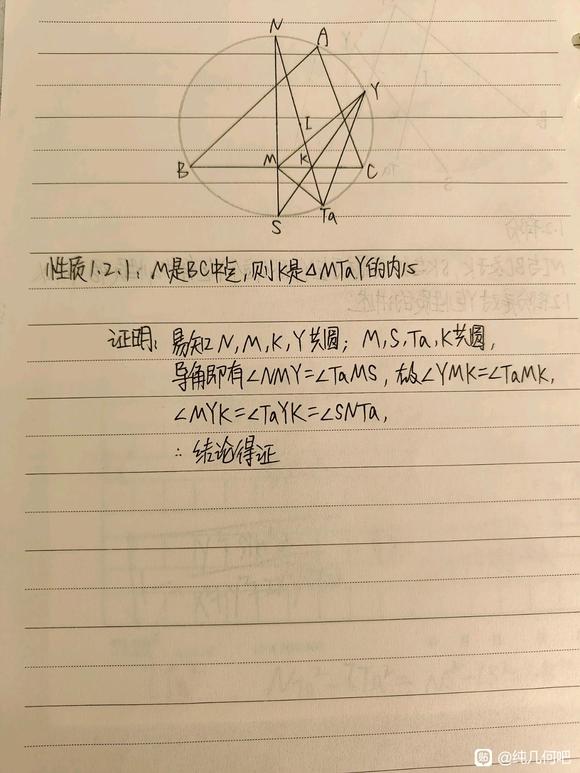 N
A
Y
I
B
M
K
C
S
Ta
性质1.2.1：M是BC中点，则K是△MTaY的内心
证明：易知N,M,K,Y共圆；M,S,Ta,K共圆，
导角即有∠NMY=∠TaMS，故∠YMK=∠TaMK，
∠MYK=∠TaYK=∠SNTa，
∴结论得证
贴 @纯几何吧